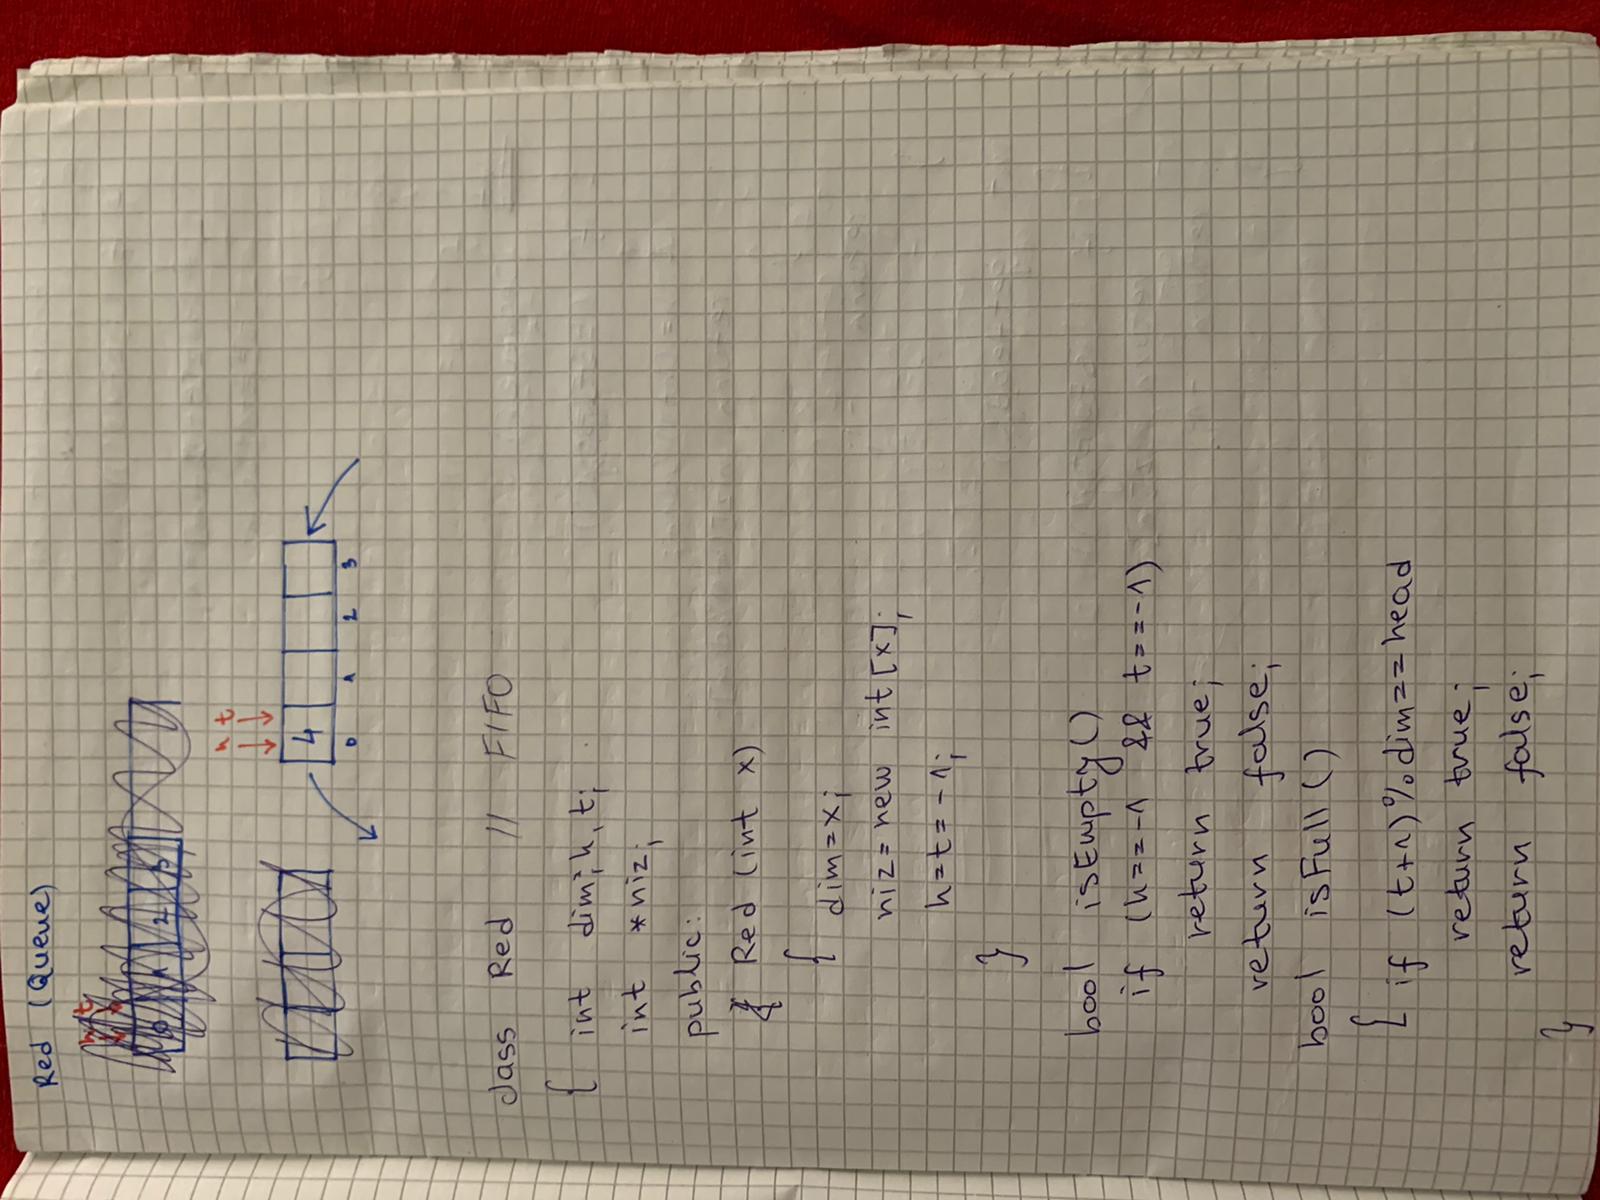 Red (Queue)
h t
4
0 1 2 3
class Red // FIFO
{
int dim, h, t;
int *niz;
public:
Red (int x)
{ dim=x;
niz=new int[x];
h=t=-1;
}
bool isEmpty()
if (h==-1 && t==-1)
return true;
return false;
bool isFull()
{ if (t+1)%dim==head
return true;
return false;
}